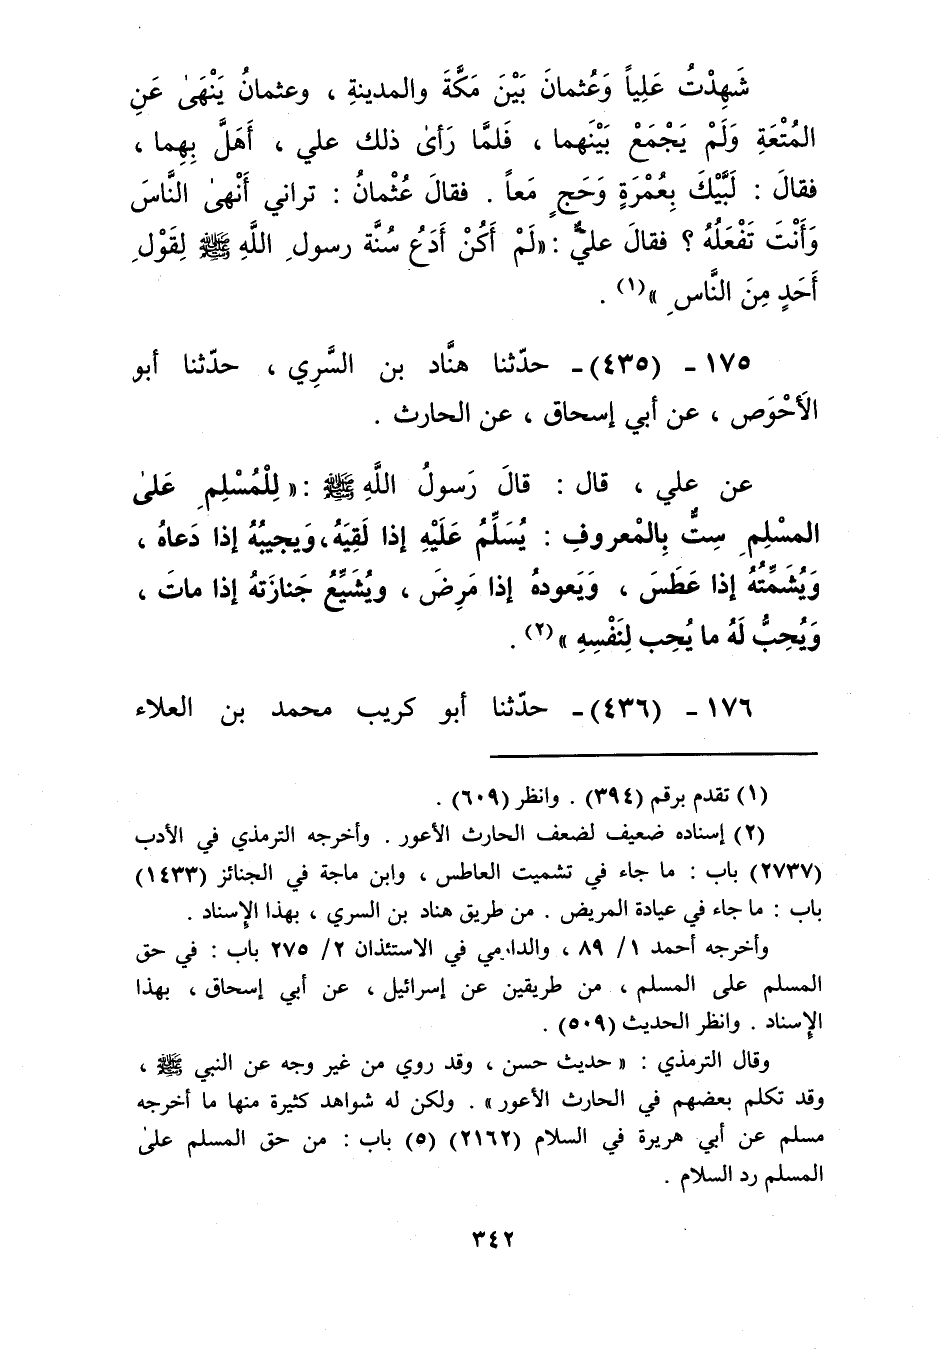 شَهِدْتُ عَلِياً وَعُثمانَ بَيْنَ مَكَّةَ والمدينةِ ، وعثمانُ يَنْهَىٰ عَنِ
المُتْعَةِ وَلَمْ يَجْمَعْ بَيْنَهما ، فَلمَّا رَأىٰ ذلك علي ، أَهلَّ بِهِما ،
فقالَ : لَبَّيْكَ بِعُمْرَةٍ وَحَجٍ مَعاً . فقالَ عُثْمانُ : تراني أَنْهىٰ النَّاسَ
وَأَنْتَ تَفْعَلُهُ ؟ فقالَ عليٌّ : « لَمْ أَكُنْ أَدَعُ سُنَّة رسولِ اللَّهِ ﷺ لِقَوْلِ
أَحَدٍ مِنَ النَّاسِ »(١) .
١٧٥ - (٤٣٥) - حدّثنا هنَّاد بن السَّرِي ، حدّثنا أبو
الأَحْوَص ، عن أبي إسحاق ، عن الحارث .
عن علي ، قال : قالَ رَسولُ اللَّهِ ﷺ : « لِلْمُسْلِمِ عَلىٰ
المسْلِمِ سِتٌّ بِالْمْعروفِ : يُسَلِّمُ عَلَيْهِ إذا لَقِيَهُ ، وَيجيبُهُ إذا دَعاهُ ،
وَيُشَمِّتُهُ إذا عَطَسَ ، وَيَعودهُ إذا مَرِضَ ، ويُشَيِّعُ جَنازَتهُ إذا ماتَ ،
وَيُحِبُّ لَهُ ما يُحِب لِنَفْسِهِ »(٢) .
١٧٦ - (٤٣٦) - حدّثنا أبو كريب محمد بن العلاء
(١) تقدم برقم (٣٩٤) . وانظر (٦٠٩) .
(٢) إسناده ضعيف لضعف الحارث الأعور . وأخرجه الترمذي في الأدب
(٢٧٣٧) باب : ما جاء في تشميت العاطس ، وابن ماجة في الجنائز (١٤٣٣)
باب : ما جاء في عيادة المريض . من طريق هناد بن السري ، بهذا الإسناد .
وأخرجه أحمد ١/ ٨٩ ، والدارمي في الاستئذان ٢/ ٢٧٥ باب : في حق
المسلم على المسلم ، من طريقين عن إسرائيل ، عن أبي إسحاق ، بهذا
الإسناد . وانظر الحديث (٥٠٩) .
وقال الترمذي : « حديث حسن ، وقد روي من غير وجه عن النبي ﷺ ،
وقد تكلم بعضهم في الحارث الأعور » . ولكن له شواهد كثيرة منها ما أخرجه
مسلم عن أبي هريرة في السلام (٢١٦٢) (٥) باب : من حق المسلم علىٰ
المسلم رد السلام .
٣٤٢